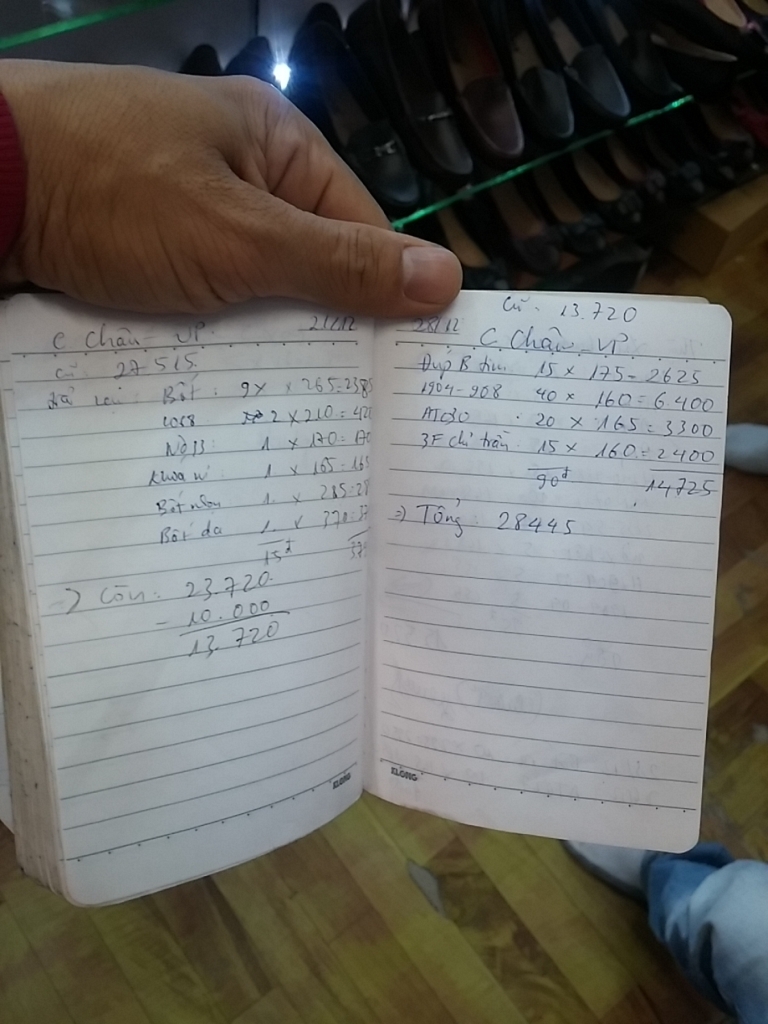 C Châu - VP. 21/12
cũ: 27515.
trả lại: Bốt: 9 x 265 = 2385
2 x 210 = 420
1 x 170 = 170
1 x 165 = 165
1 x 285 = 28
Bốt da 1 x 370 = 37
15đ
=> Còn: 23.720
- 10.000
13.720
KLONG
cũ: 13.720
28/12 C Châu VP
Đúp B tím 15 x 175 = 2625
1904-908 40 x 160 = 6.400
20 x 165 = 3300
3F chỉ trần 15 x 160 = 2400
90đ 14725
=> Tổng 28445
KLONG